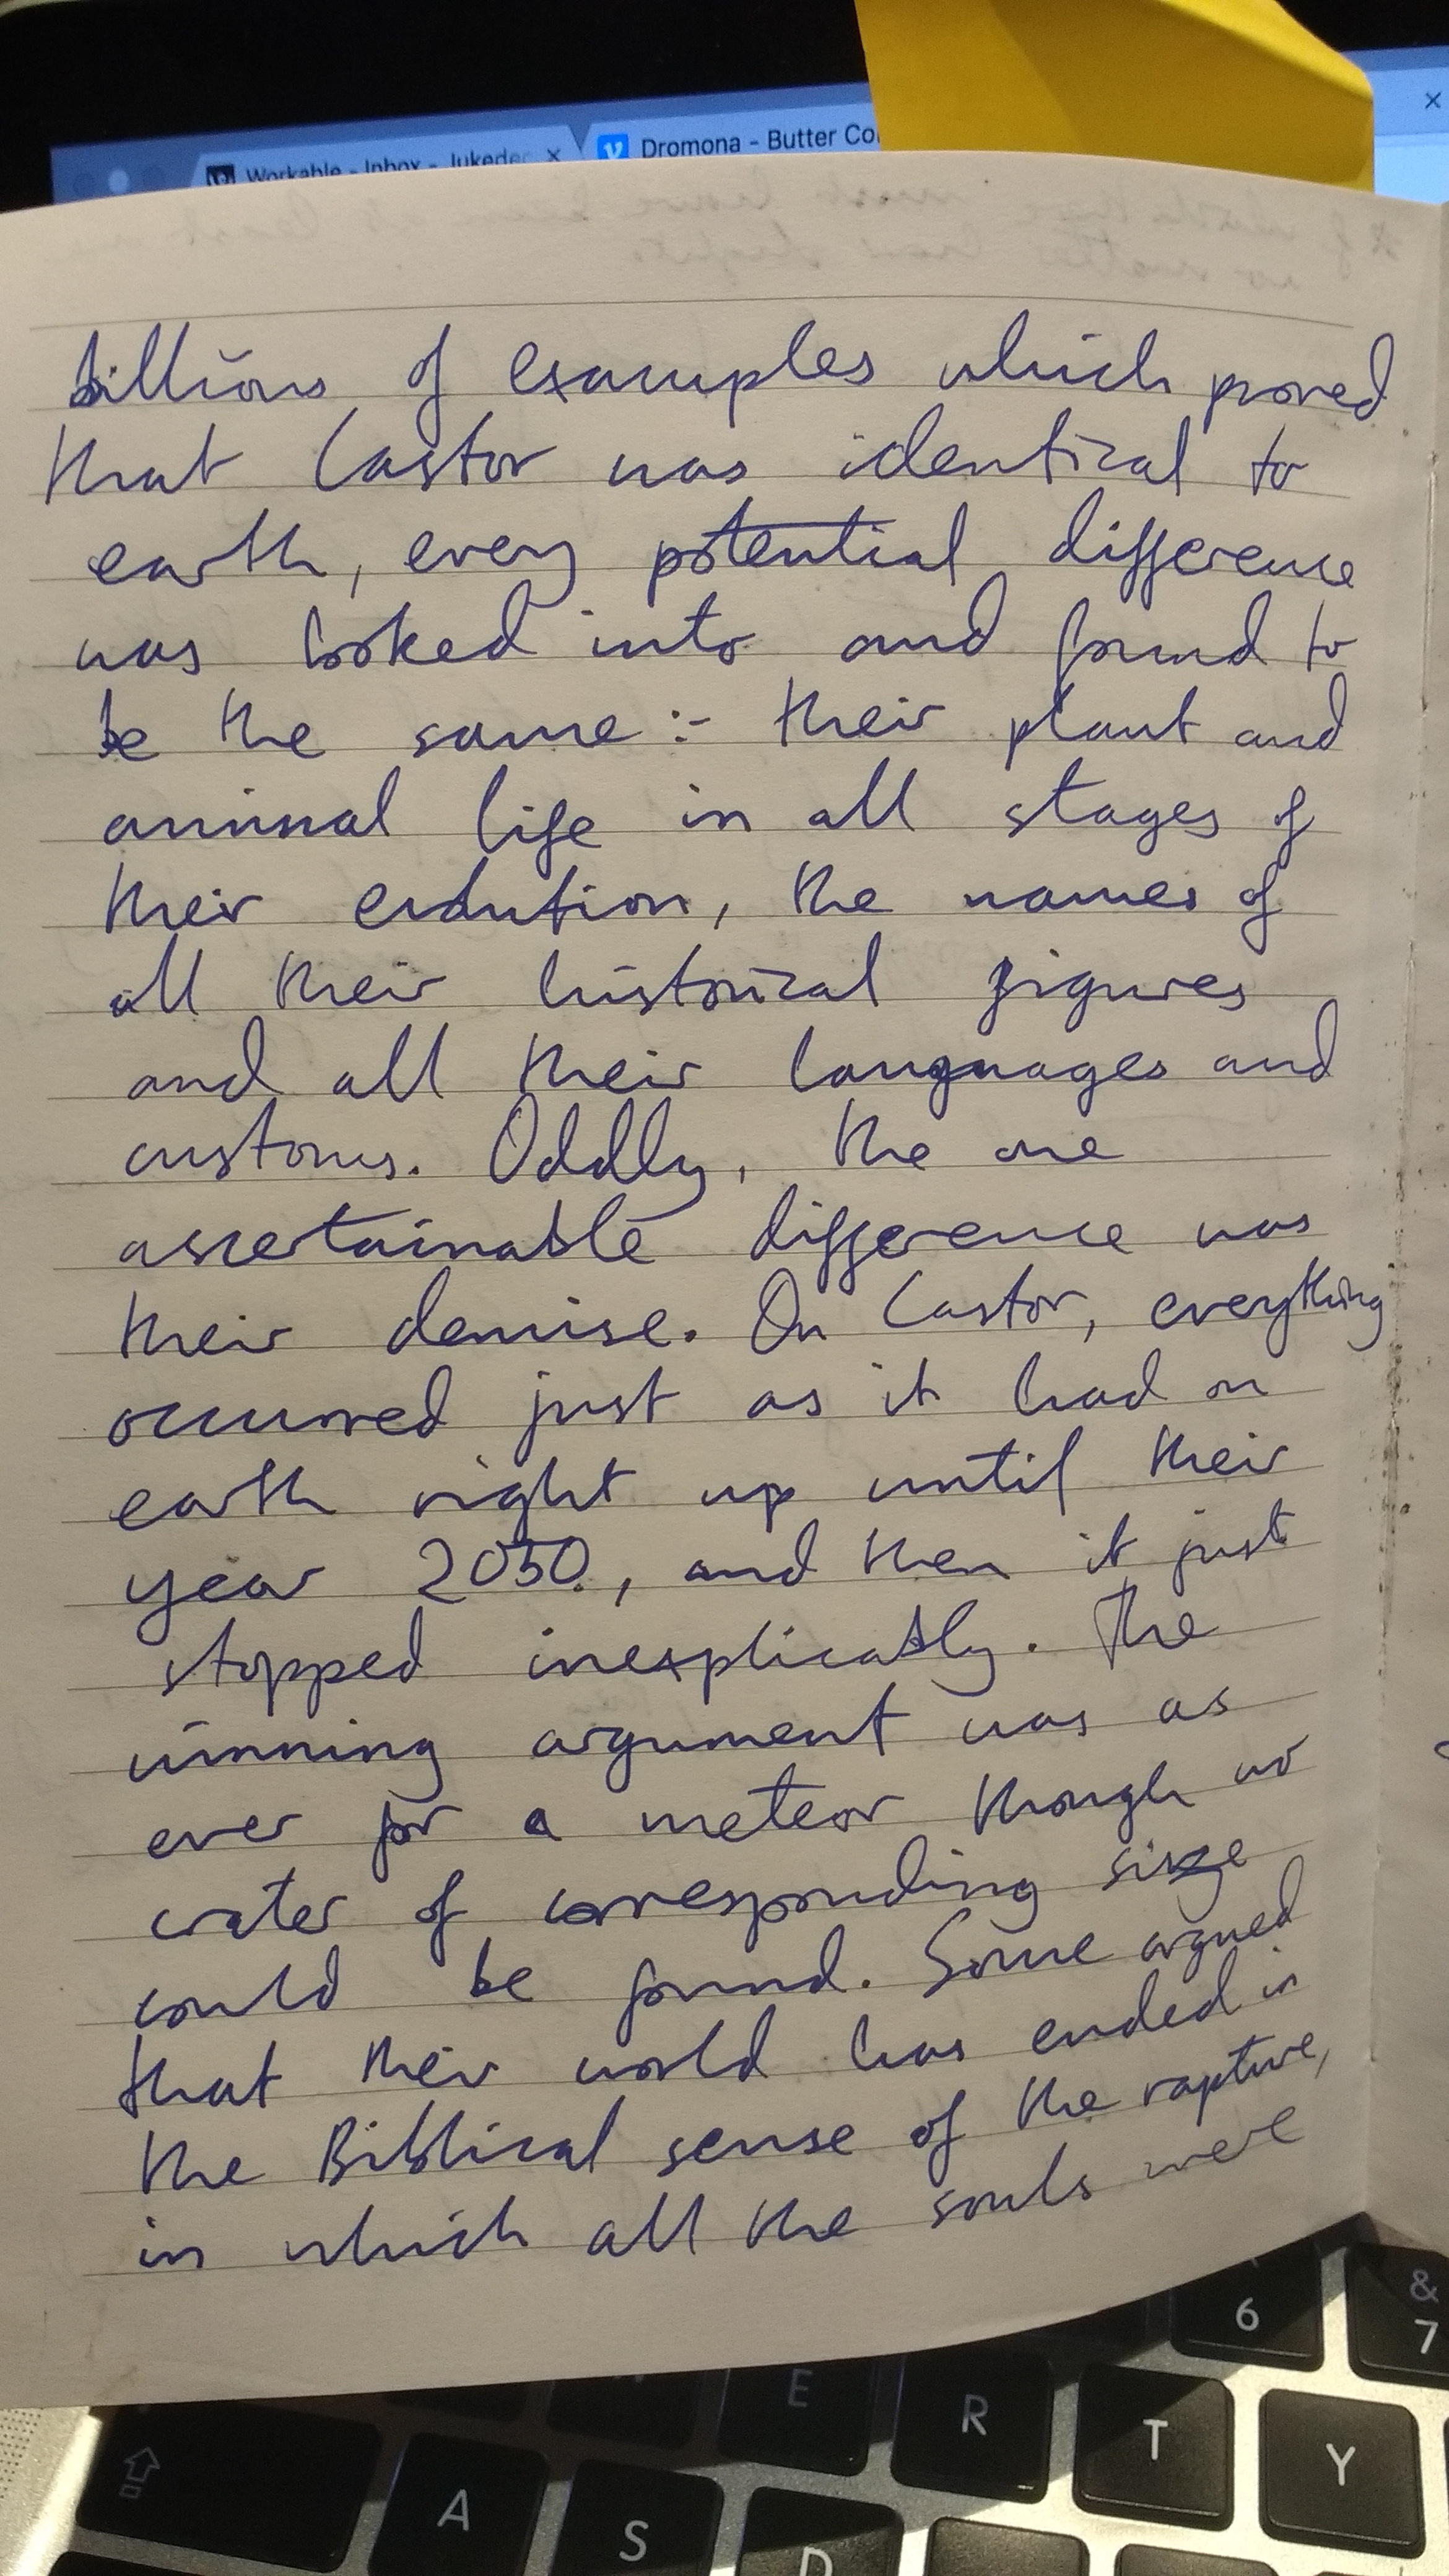 Workable - Inbox - Jukedec
Dromona - Butter Co
billions of examples which proved
that Castor was identical to
earth, every potential difference
was looked into and found to
be the same :- their plant and
animal life in all stages of
their evolution, the names of
all their historical figures
and all their languages and
customs. Oddly, the one
ascertainable difference was
their demise. On Castor, everything
occurred just as it had on
earth right up until their
year 2050, and then it just
stopped inexplicably. The
winning argument was as
ever for a meteor though no
crater of corresponding size
could be found. Some argued
that their world has ended in
the Biblical sense of the rapture,
in which all the souls were
6 & 7
E R T Y
A S D